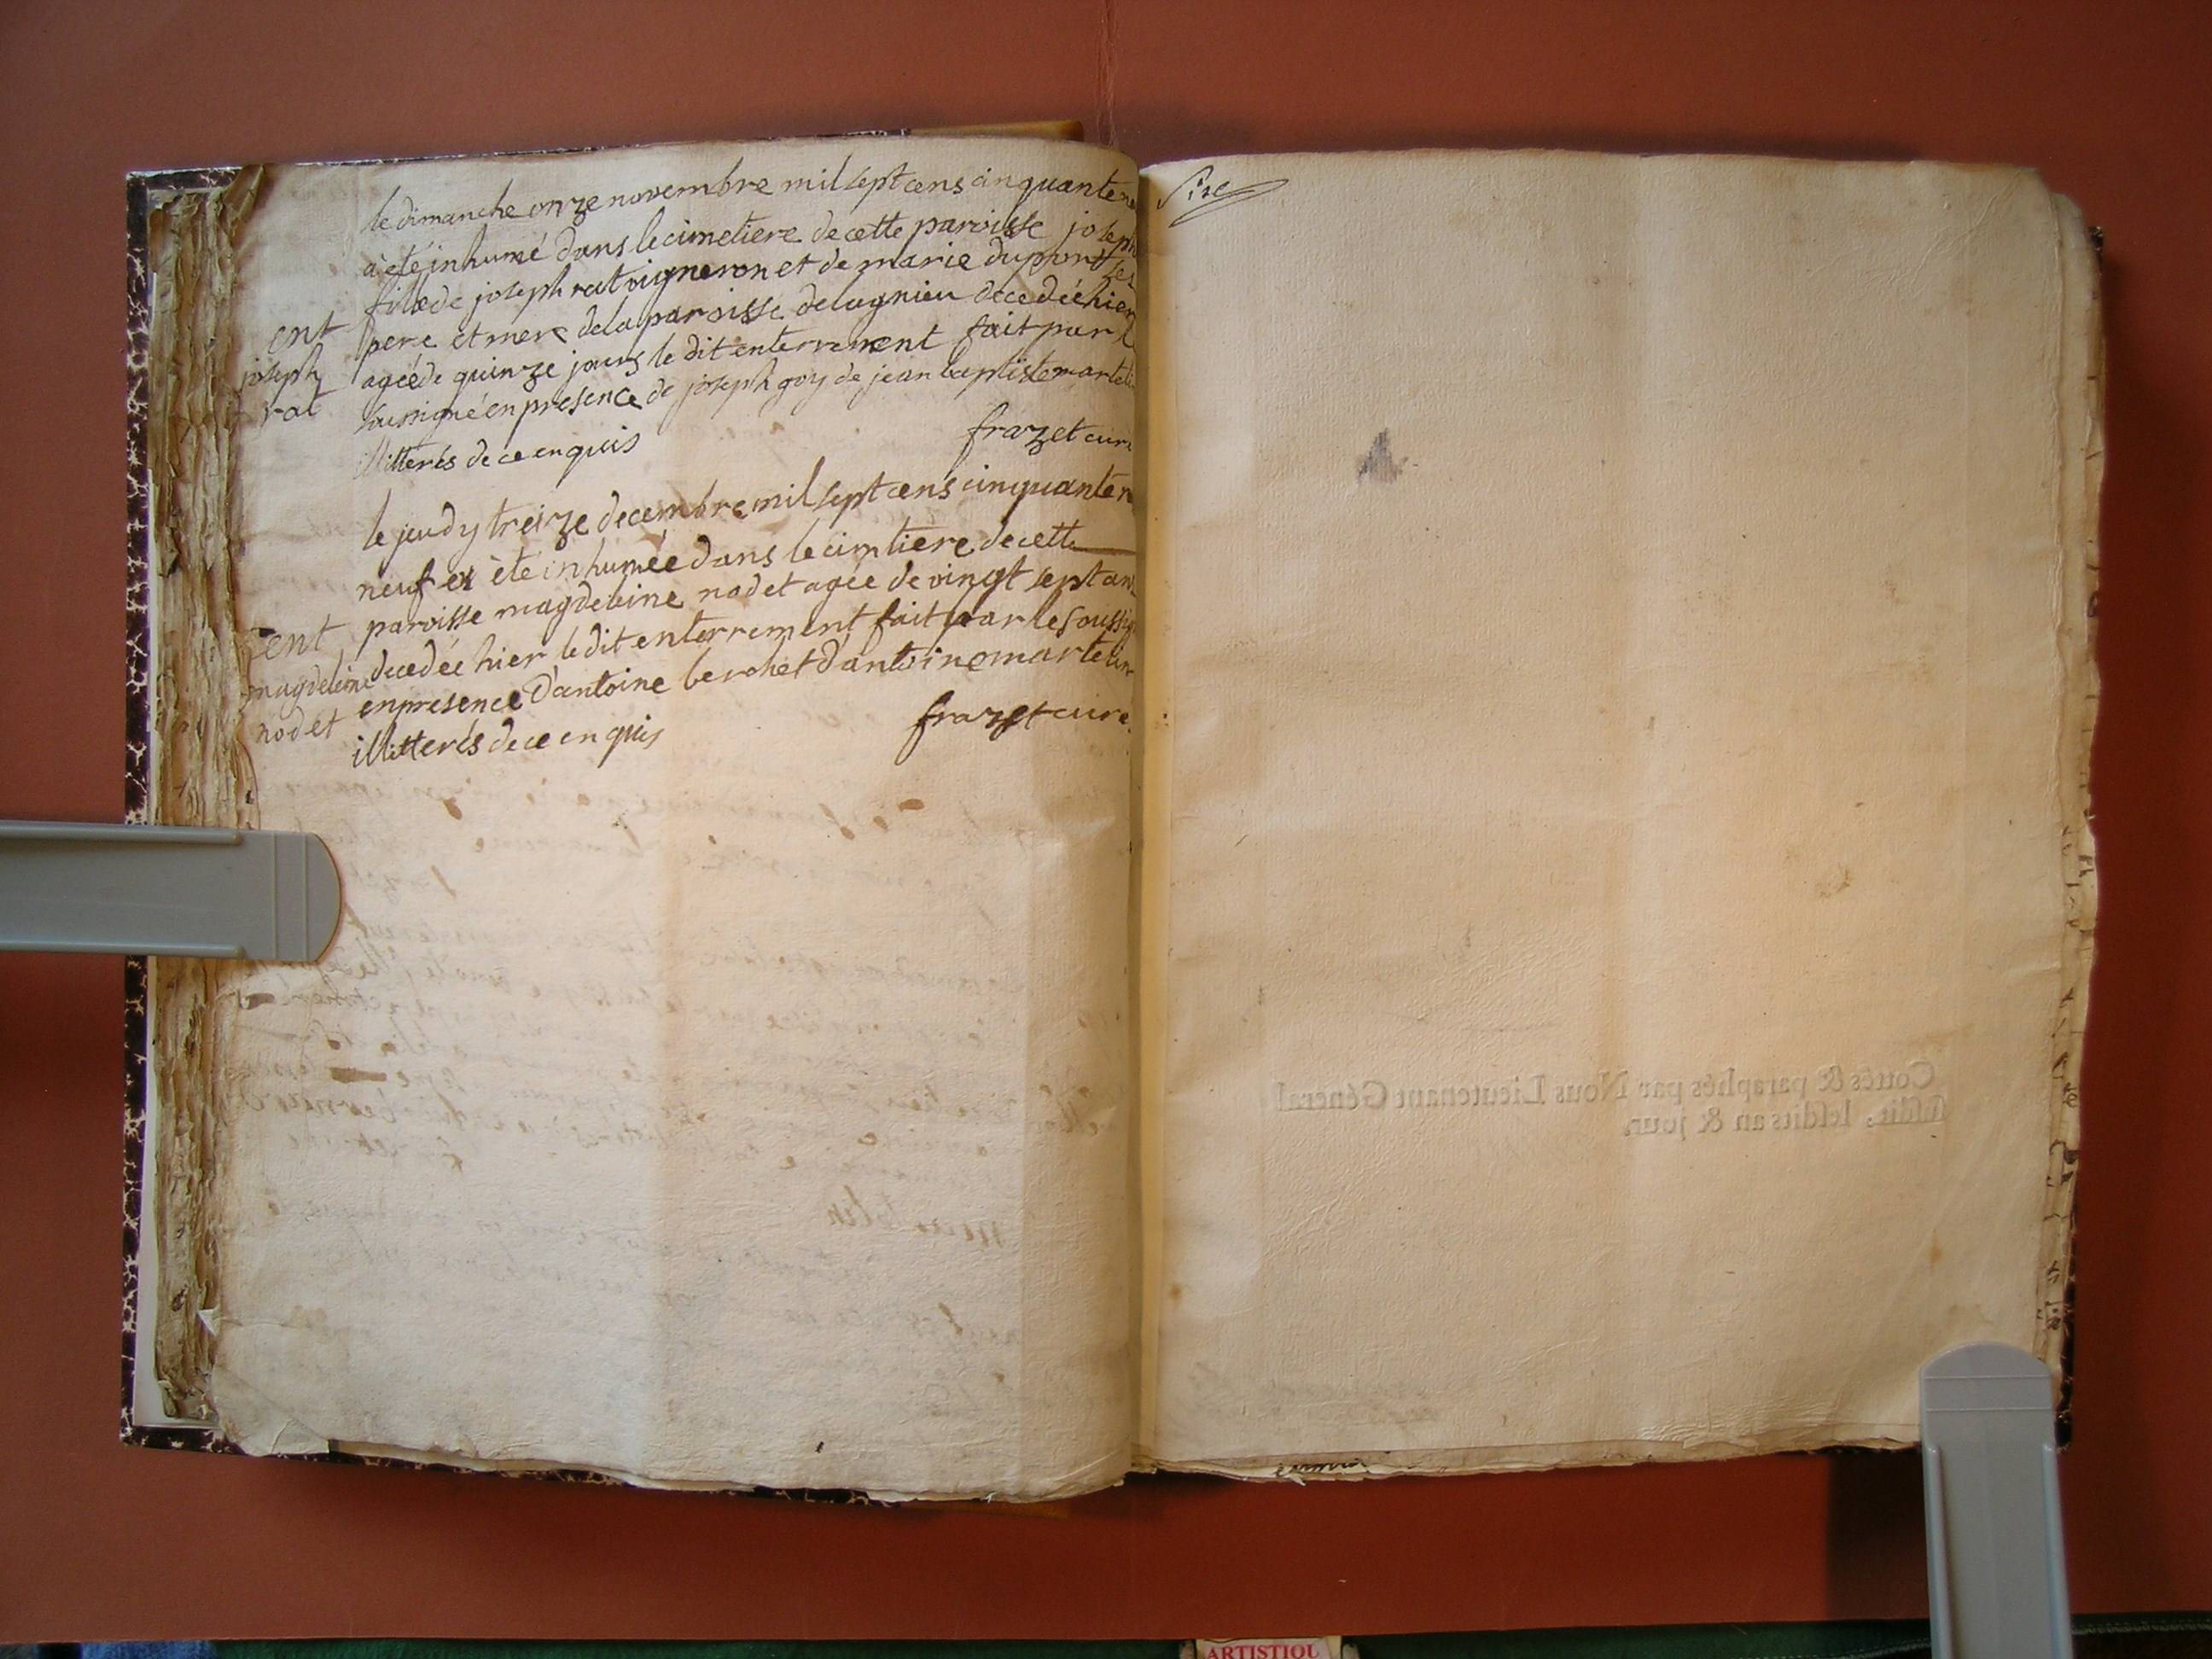 le dimanche onze novembre mil sept cens cinquante
à été inhumé dans le cimetiere de cette paroisse joseph
fils de joseph rat vigneron et de marie dupont ses
pere et mere de la paroisse de lagnieu decedé hier
agé de quinze jours le dit enterrement fait par
soussigné en presence de joseph goy de jean baptiste martelin
illitterés de ce enquis
frazet curé
ent
joseph
rat
le jeudy treize decembre mil sept cens cinquante
neuf a été inhumée dans le cimtiere de cette
paroisse magdeleine nodet agée de vingt sept ans
decedée hier le dit enterrement fait par le soussig
en presence d'antoine berchet d'antoine martelin
illitterés de ce enquis
frazet curé
ent
magdeleine
nodet
Cottés & paraphés par Nous Lieutenant Général
susdit, lesdits an & jour.
ARTISTIQU